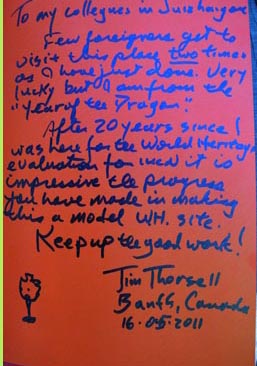 To my collegues in Juizhaigou
Few foreigners get to
visit this place two times
as I have just done. Very
lucky but I am from the
"Year of the Dragon".
After 20 years since I
was here for the World Heritage
evaluation for IUCN it is
impressive the progress
you have made in making
this a model WH. site.
Keep up the good work!
Jim Thorsell
Banff, Canada
16.05.2011